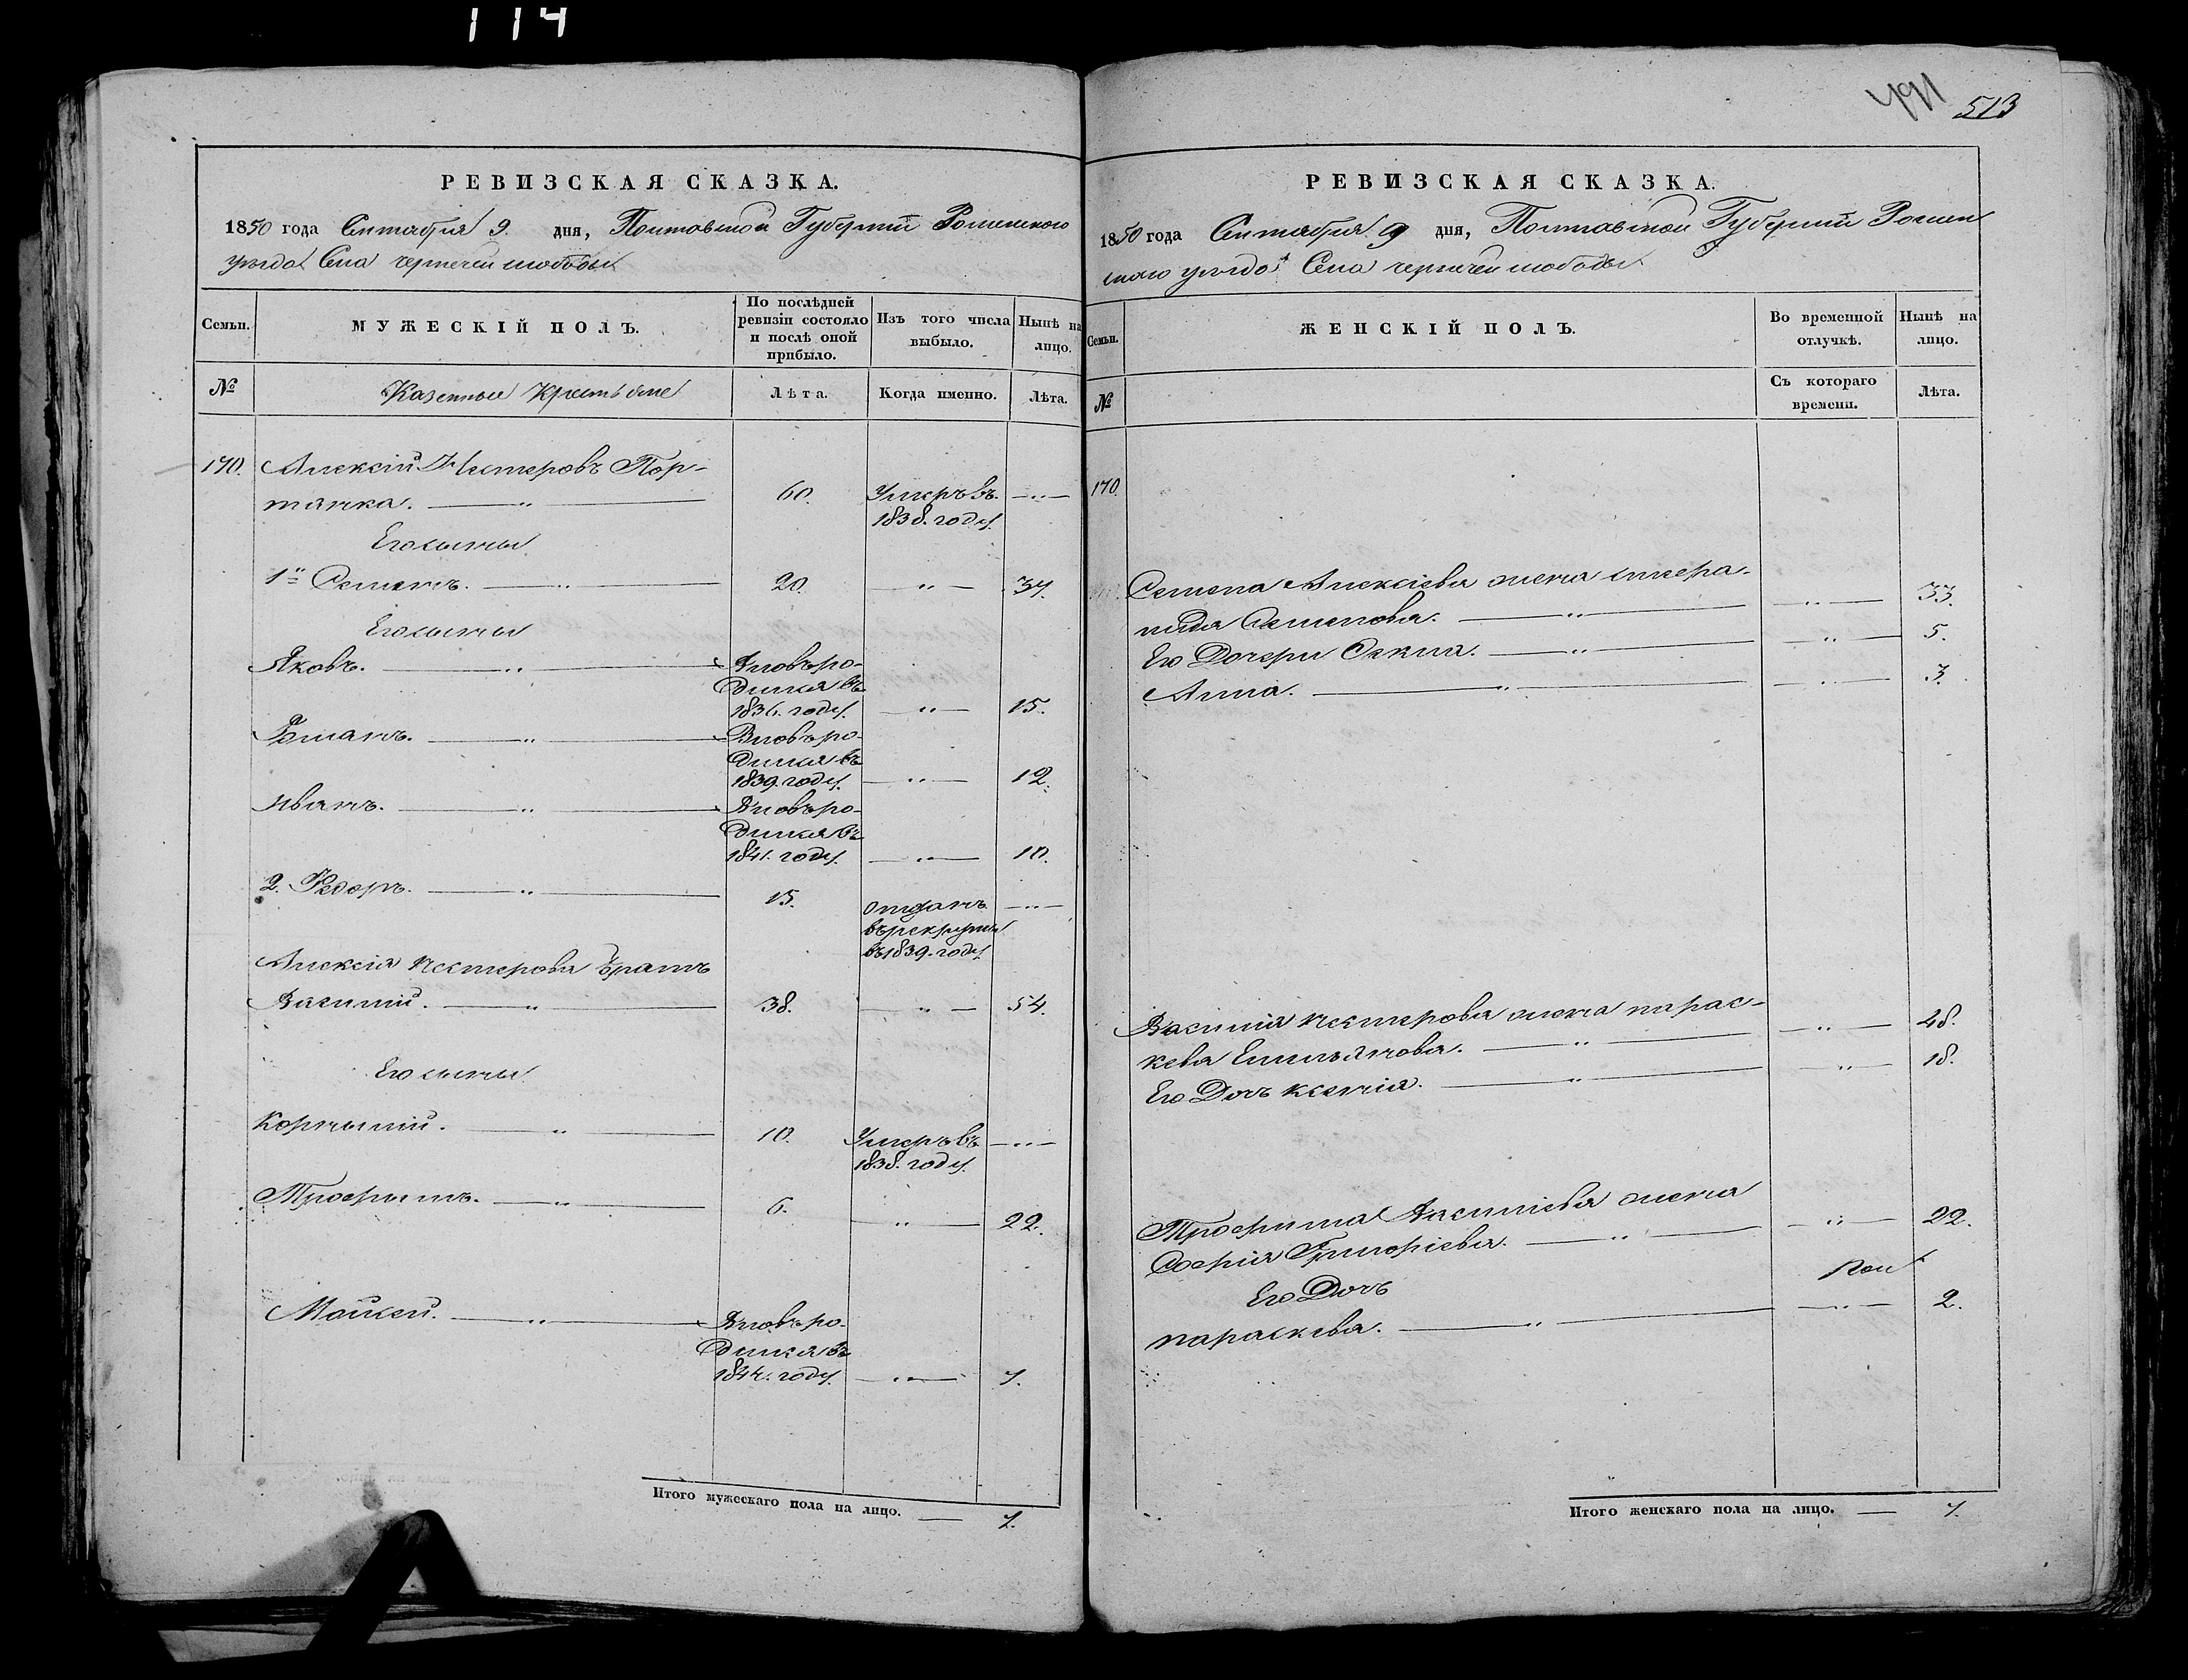 114
РЕВИЗСКАЯ СКАЗКА.
1850 года Сентября 9. дня, Полтавской Губерніи Роменского
уѣзда Села чернечей слободы
Семьи.
МУЖЕСКІЙ ПОЛЪ.
По послѣдней
ревизіи состояло
и послѣ оной
прибыло.
Изъ того числа
выбыло.
Нынѣ на
лицо.
№
Казенные Крестьяне
Лѣта.
Когда именно.
Лѣта.
170. Алексѣй Нестеровъ Пор-
тянка. 60. Умеръ въ
1838. году
Его сыны
1й Семенъ. 20. 37.
Его сыны
Яковъ. Вновь ро-
дился въ
1836. году. 15.
Романъ. Вновь ро-
дился въ
1839. году. 12.
Иванъ. Вновь ро-
дился въ
1841. году. 10.
2. Федоръ. 15. отданъ
въ рекруты
въ 1839. году
Алексія Нестерова братъ
Василій. 38. 54.
Его сыны
Корнылій. 10. Умеръ въ
1838. году.
Трофымъ. 6. 22.
Мойсей. Вновь ро-
дился въ
1844. году. 7.
Итого мужескаго пола на лицо. 7.
491 513
РЕВИЗСКАЯ СКАЗКА.
1850 года Сентября 9 дня, Полтавской Губерніи Ромен
ского уѣзда Села чернечей слободы
Семьи.
ЖЕНСКІЙ ПОЛЪ.
Во временной
отлучкѣ.
Нынѣ на
лицо.
№
Съ котораго
времени.
Лѣта.
170.
Семена Алексіева жена
Семенова. 33.
Его Дочери 5.
Анна. 3.
Василія Нестерова жена парас-
кева Емильянова. 48.
Его Дочь Ксенія. 18.
Трофима Василіева жена
Софія Григоріева. 22.
Его Дочь
параскева. 2.
Итого женскаго пола на лицо. 7.